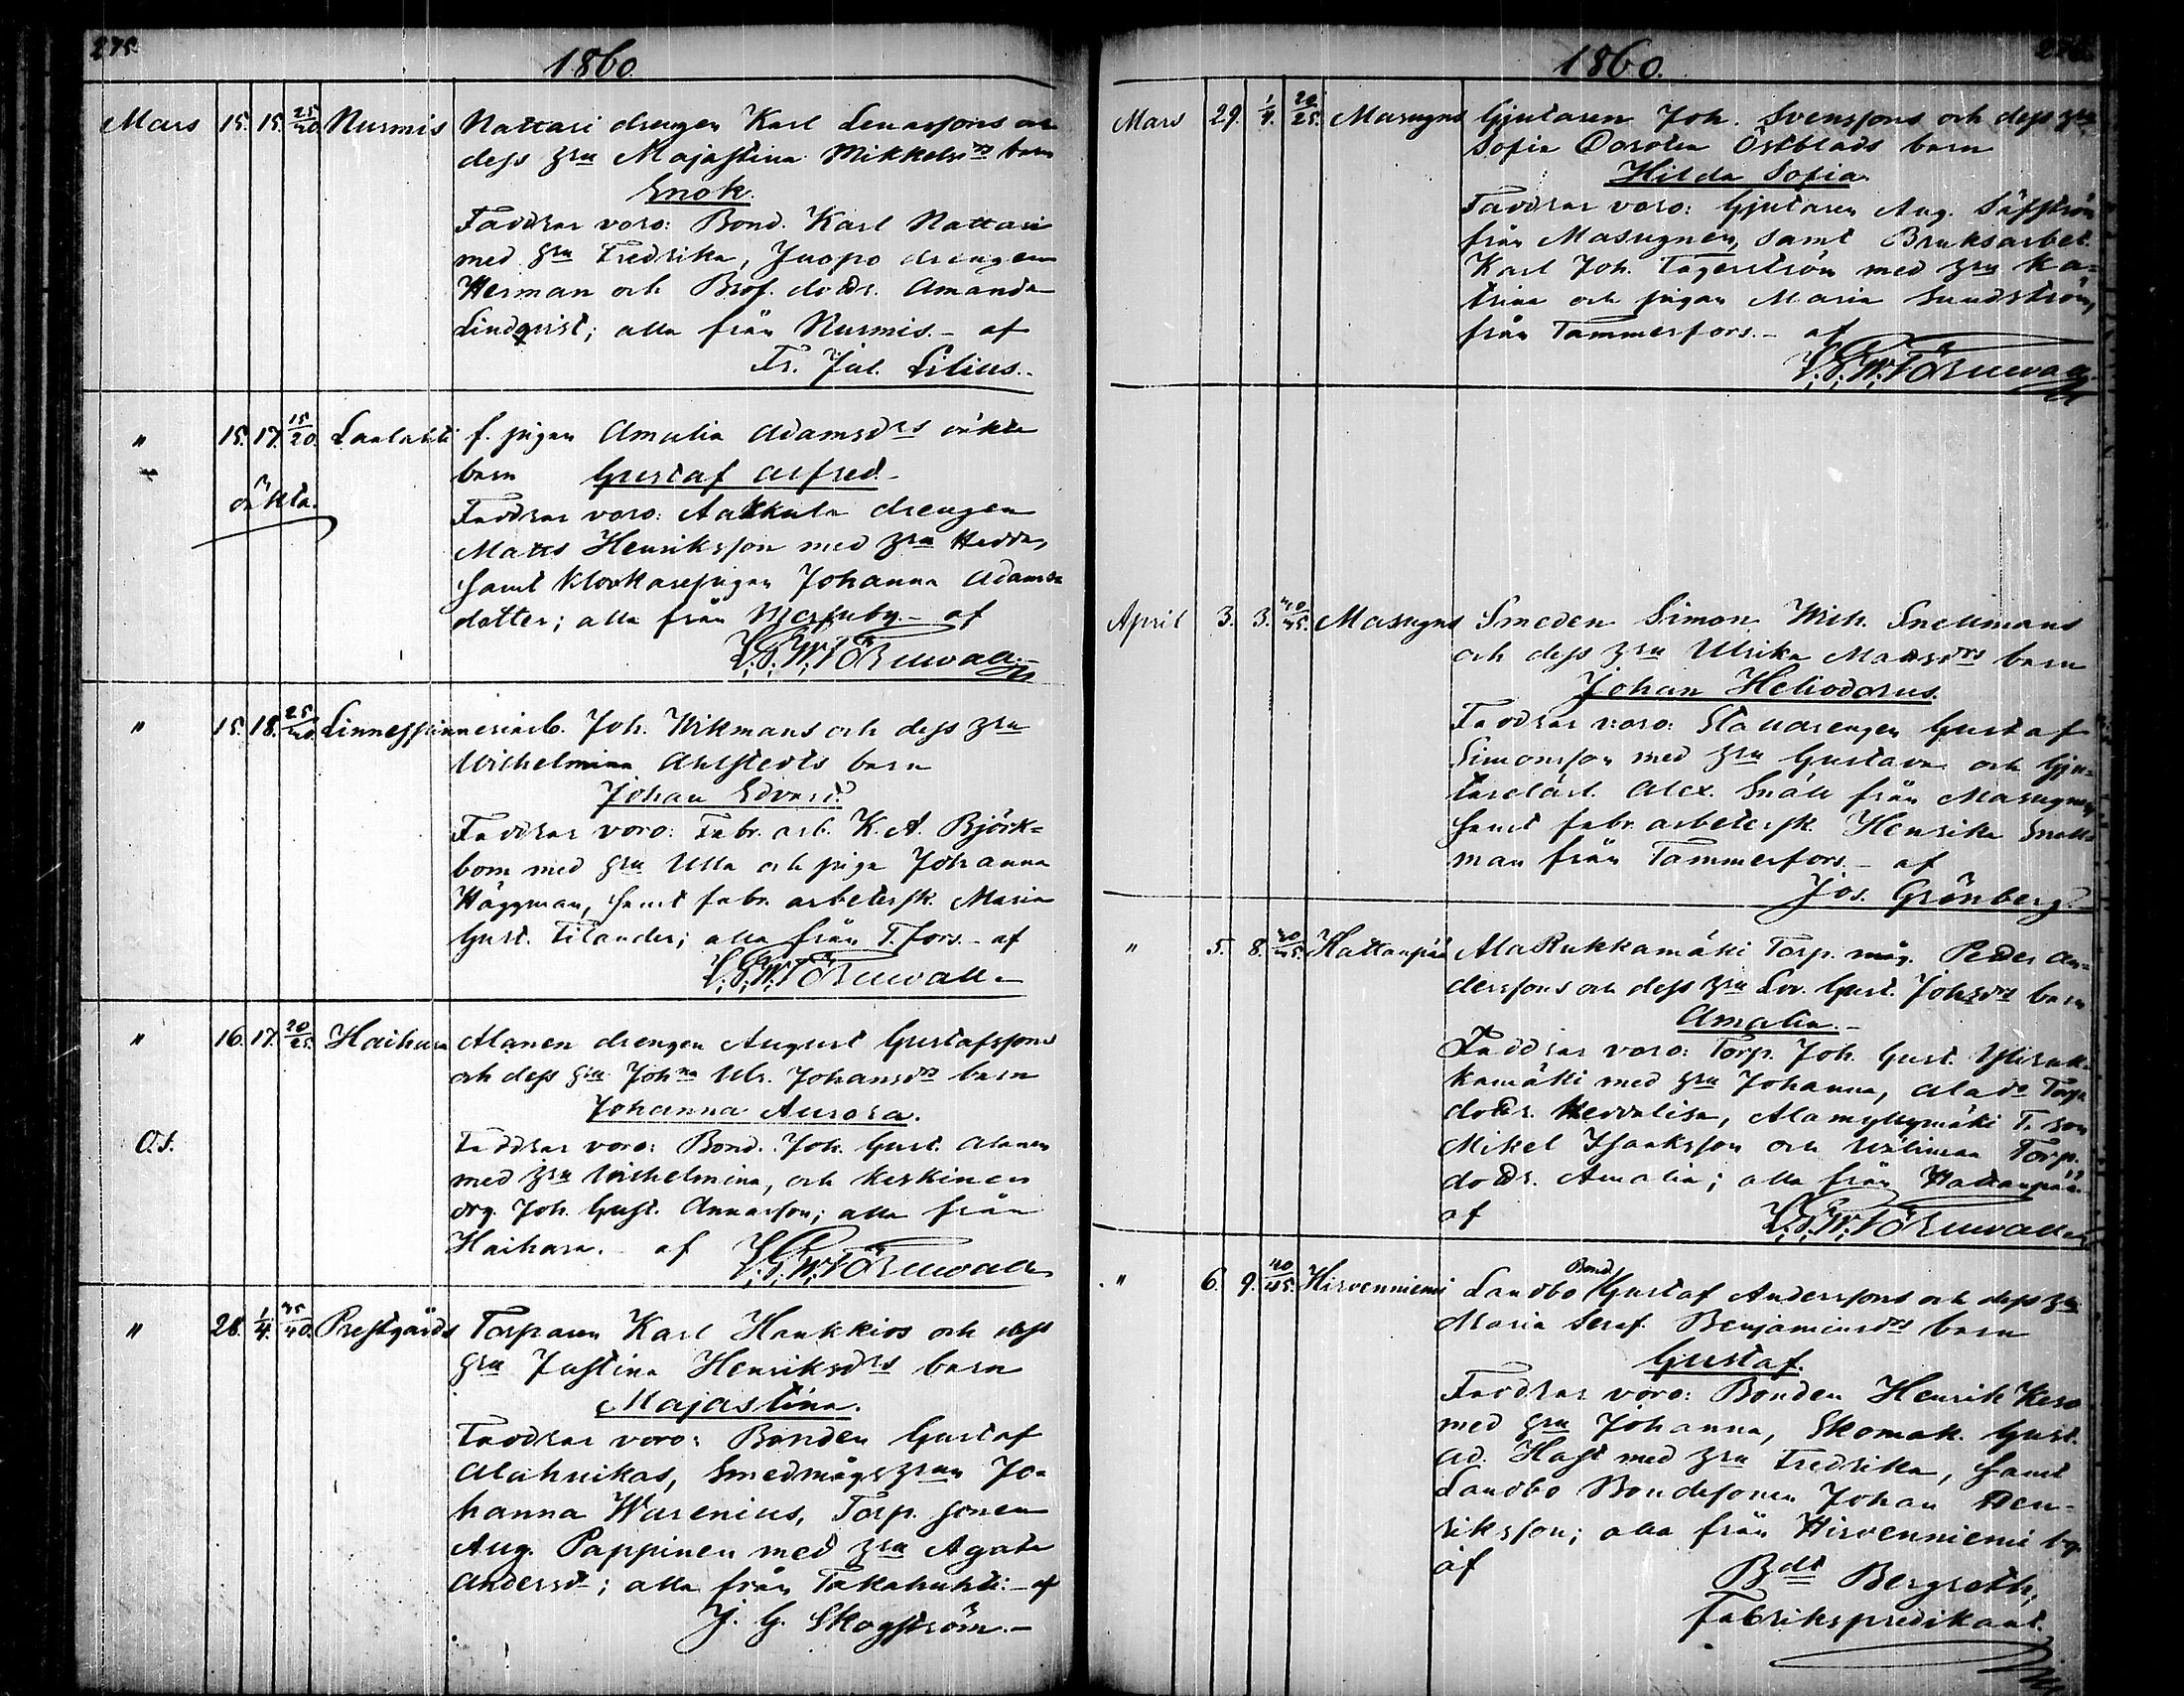 275.
1860.
Mars 15. 15. 25/30. Nurmis Nattari drengen Karl Lenasssons och
dess hru Majastina Mikkelsdrs barn
Enok.
Faddrar voro: Bond. Karl Nattari
med hru Fredrika, Juopo drengen
Herman och Prof. dottr. Amanda
Lindqvist; alla från Nurmis. – af
Fr. Jul. Lilius.
" 15. 17. 15/20. Laalahti f. pigan Amalia Adamsdrs oäkta
barn Gustaf Alfred.
oäkta.
Faddrar voro: Aakkula drengen
Matts Henriksson med hru Hedda,
samt klockarepigan Johanna Adams
dotter; alla från Messuby. – af
" 15. 18. 25/30. Linnespinneriarb. Joh. Wikmans och dess hru
Wilhelmina Ahlstedts barn
Johan Edvard.
Faddrar voro: Fabr. arb. K. A. Björk=
bom med hru Ulla och piga Johanna
Häggman, samt fabr. arbetersk. Maria
Gust. Tilander; alla från T.fors. – af
" 16. 17. 20/25. Haihara Alanen drengen August Gustafssons
och dess hru Johna Ulr. Johansdrs barn
Johanna Aurora.
Faddrar voro: Bond. Joh. Gust. Alanen
med hru Wilhelmina, och Keskinen
drg. Joh. Gust. Annasson; alla från
Haihara. – af
" 28. 1/4. 35/40. Prestgårds Torparen Karl Haukkios och dess
hru Justina Henriksdrs barn
Majastina.
Faddrar voro: Bonden Gustaf
Alahuikas, Smedmågs hrun Jo=
hanna Warenius, Torp. sonen
Aug. Pappinen med hru Agata
Andersd.; alla från Takahuhti. – af
J. G. Skogström. –
1860.
Mars 29. 1/4. 20/25. Masugns Gjutaren Joh. Svenssons och dess hru
Sofia Dorotea Östblads barn
Hilda Sofia.
Faddrar voro: Gjutaren Aug. Säfström
från Masugnen, samt Bruksarbet.
Karl Joh. Tagerström med hru Ka=
trina och pigan Maria Sundström,
från Tammerfors. – af
April 3. 3. Masugns Smeden Simon Wilh. Snellmans
och dess hru Ulrika Matsdrs barn
Johan Heliodorus.
Faddrar voro: Stalldrengen Gustaf
Simonsson med hru Gustava och Gju=
tarelärl. Alex. Snäll från Masugnen,
samt fabr. arbetersk. Henrika Snell=
man från Tammerfors. – af
Jos. Grönberg.
" 5. 8. Hattanpää AlaRukkamäki Torp. måg. Peder An=
derssons och dess hru Lov. Gust. Johsdrs barn
Amalia. –
Faddrar voro: Torp. Joh. Gust. Yliruk=
kamäki med hru Johanna, Ala do Torp
dottr. Hedvalisa, Alamyllymäki T. son
Mikel Isaaksson och Wälimaa Torp.
dottr. Amalia; alla från Hattanpää.
af
" 6. 9. 40/45. Hirvenniemi Landbo Bond. Gustaf Anderssons och dess hru
Maria Seraf. Benjaminsdrs barn
Gustaf.
Faddrar voro: Bonden Henrik Keso
med hru Johanna, Skomak. Gust.
Ad. Hast med hru Fredrika, samt
Landbo Bondesonen Johan Hen=
riksson; alla från Hirvenniemi by.
af
Bdt Bergroth,
Fabrikspredikant.